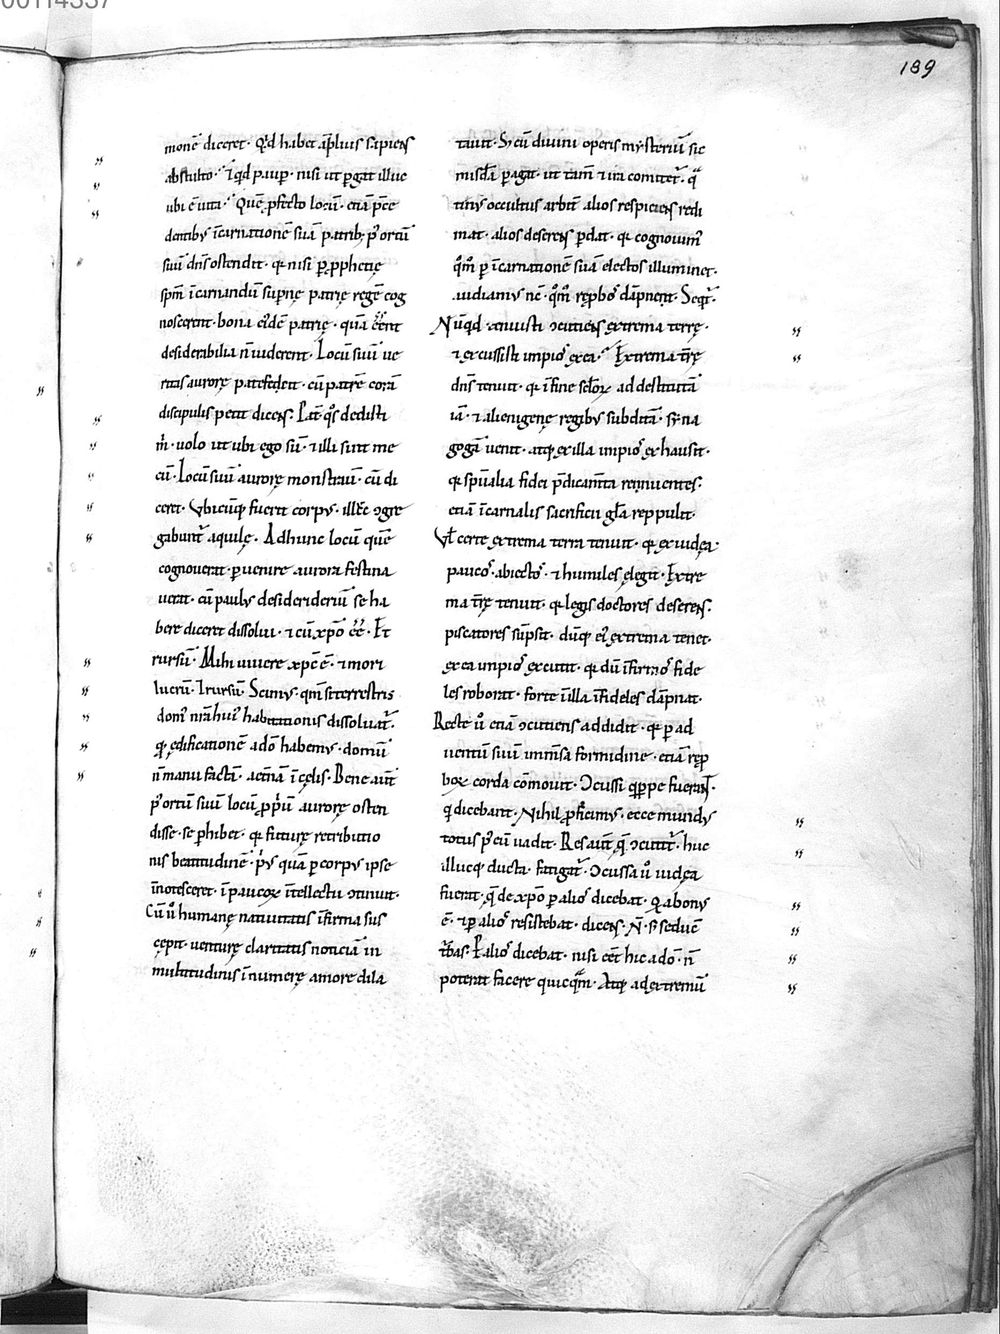 00114337
189
monē diceret· Qͥd habet āplius sapiens
abstulto· ꞇ̄ qd paup̱· nisi ut p̱gat illuc
ubi ē uita· Quē ꝓfecto locū· etiā p̄ce
dentibꝰ īcarnationē suā patribꝫ p⁹ ortū
suū dn̄s ostendit· qꝫ nisi p̱ ꝓphetię
sp̄m īcarnandū supnę patrię regē cog
noscerent· bona eı̄dē patrię· quā ēēnt
desiderabilia n̄ uiderent· Locū suū ue
ritas aurorę patefecit· cū patrē corā
discipulis petiit dicens· Pat̄ qͦs dedisti
m̄· uolo ut ubi ego sū· ⁊ illi sint me
cū· Locū suū aurorę monstrauı̄· cū di
ceret· Vbicūqꝫ fuerit corpꝰ· illūc ꝯgre
gabunt̄ aquilę· Ad hunc locū quē
cognouerat· p̱uenire aurora festina
uerat· cū paulꝰ desideriderıū se ha
bere diceret dissolui· ⁊ cū xp̄o ēē· Et
rursū· Mihi uiuere xp̄c ē· ⁊ mori
lucrū· Irursū· Scimꝰ· qm̄ si terrestris
domꝰ nr̄a huiꝰ habitationis dissoluat̄·
qꝫ ędificationē a dō habemꝰ· domū
n̄ manu factā· aet̄nā ī cęlis· Bene aūt
p⁹ ortū suū locū ꝓpriū aurorę osten
disse· se p̱hibet· qꝫ futurę retributio
nis beatitudinē· p̱ꝰ quā p̱ corpꝰ ipse
īnotesceret· ī paucoꝝ ītellectu ꝯtinuit·
Cū ů humanę natiuitatis īfirma sus
cępit· uenturę claritatis noticiā in
multitudinis īnumerę amore dila
tauit· S; cū diuini operis mysteriū sic
misc̄dia p̱agit· ut tam̄ ⁊ ira comitet̄· qͣ
tinꝰ occultus arbit̄ alios respiciens redi
mat· alios deserens p̱dat· qꝫ cognouimꝰ
qͦm̄ p̱ īcarnationē suā electos illuminet·
audiamꝰ nc̄· qͦm̄ rep̱bos dāpnent· Seqt̄·
Nūqd tenuisti ꝯcutiens extrema terrę·
⁊ excussisti impios ex ea· Extrema t̄rę
dn̄s tenuit· qꝫ ī fine sc̄loꝝ ad destitutā
iā· ⁊ alienigenę regibꝰ subditā· sẏna
gogā uenit· atqꝫ ex illa impios exhausit·
qꝫ spūalia fidei p̄dicam̄ta rennuentes·
etiā ī carnalis sacrificii gl̄a reppulit·
Vl̄ certe extrema terra tenuit· qꝫ ex iudęa
paucos· abiectos· ⁊ humiles elegit· Extre
ma t̄rę tenuit· qꝫ legis doctores deserens·
piscatores sūpsit· dūqꝫ eiꝰ extrema tenet·
ex ea impios excutit· qꝫ dū īfirmos fide
les roborat· forte ī illa īfideles dāpnat·
Recte ů etiā ꝯcutiens addidit· qꝫ p̱ ad
uentū suū inm̄sa formidine· etiā rep̱
boꝝ corda cōmouit· Ꝯcussi qppe fuerant·
qͥ dicebant· Nihil ꝓficimꝰ· ecce mundꝰ
totus p⁹ eū uadit· Res aūt qͣ ꝯcutit̄· huc
illucqꝫ ducta· fatigat̄· Ꝯcussa ů iudęa
fuerat· qͣ de xp̄o p̱ alios dicebat· Qꝫ bonꝰ
ē· ⁊ p̱ alios resistebat· dicens· N̄· s; seducē
t̄bas· P̱ alios dicebat· nisi eēt hic a dō· n̄
poterat facere quicqͣm· Atqꝫ ad extremū